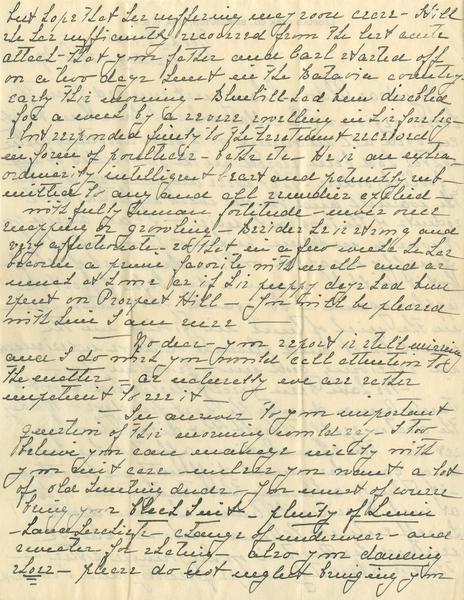 but hope that her suffering may soon cease - Still
he has sufficiently recovered from the last acute
attack - that your father and Carl started off
on a two days hunt in the Batavia country
early this morning - Bluebill had been disabled
for a week by a severe swelling in his foreleg
but responded finely to the treatment received
in form of poultices - baths etc - He is an extra-
ordinarily intelligent beast and patiently sub-
mitted to any and all remedies applied -
with fully human fortitude - never once
snapping or growling - Besides he is strong and
very affectionate - so that in a few weeks he has
become a prime favorite with us all - and as
much at home as if his puppy days had been
spent on Prospect Hill - You will be pleased
with him I am sure -
So dear - your report is still missing
and I do wish you would call attention to
the matter - as naturally we are rather
impatient to see it -
In answer to your important
question of this morning would say - I too
believe you can manage nicely with
your suit case - unless you want a lot
of old hunting duds - You must of course
bring your black suit - plenty of linen
- handkerchiefs - change of underwear - and
sweater for skating - also your dancing
shoes - please do not neglect bringing your